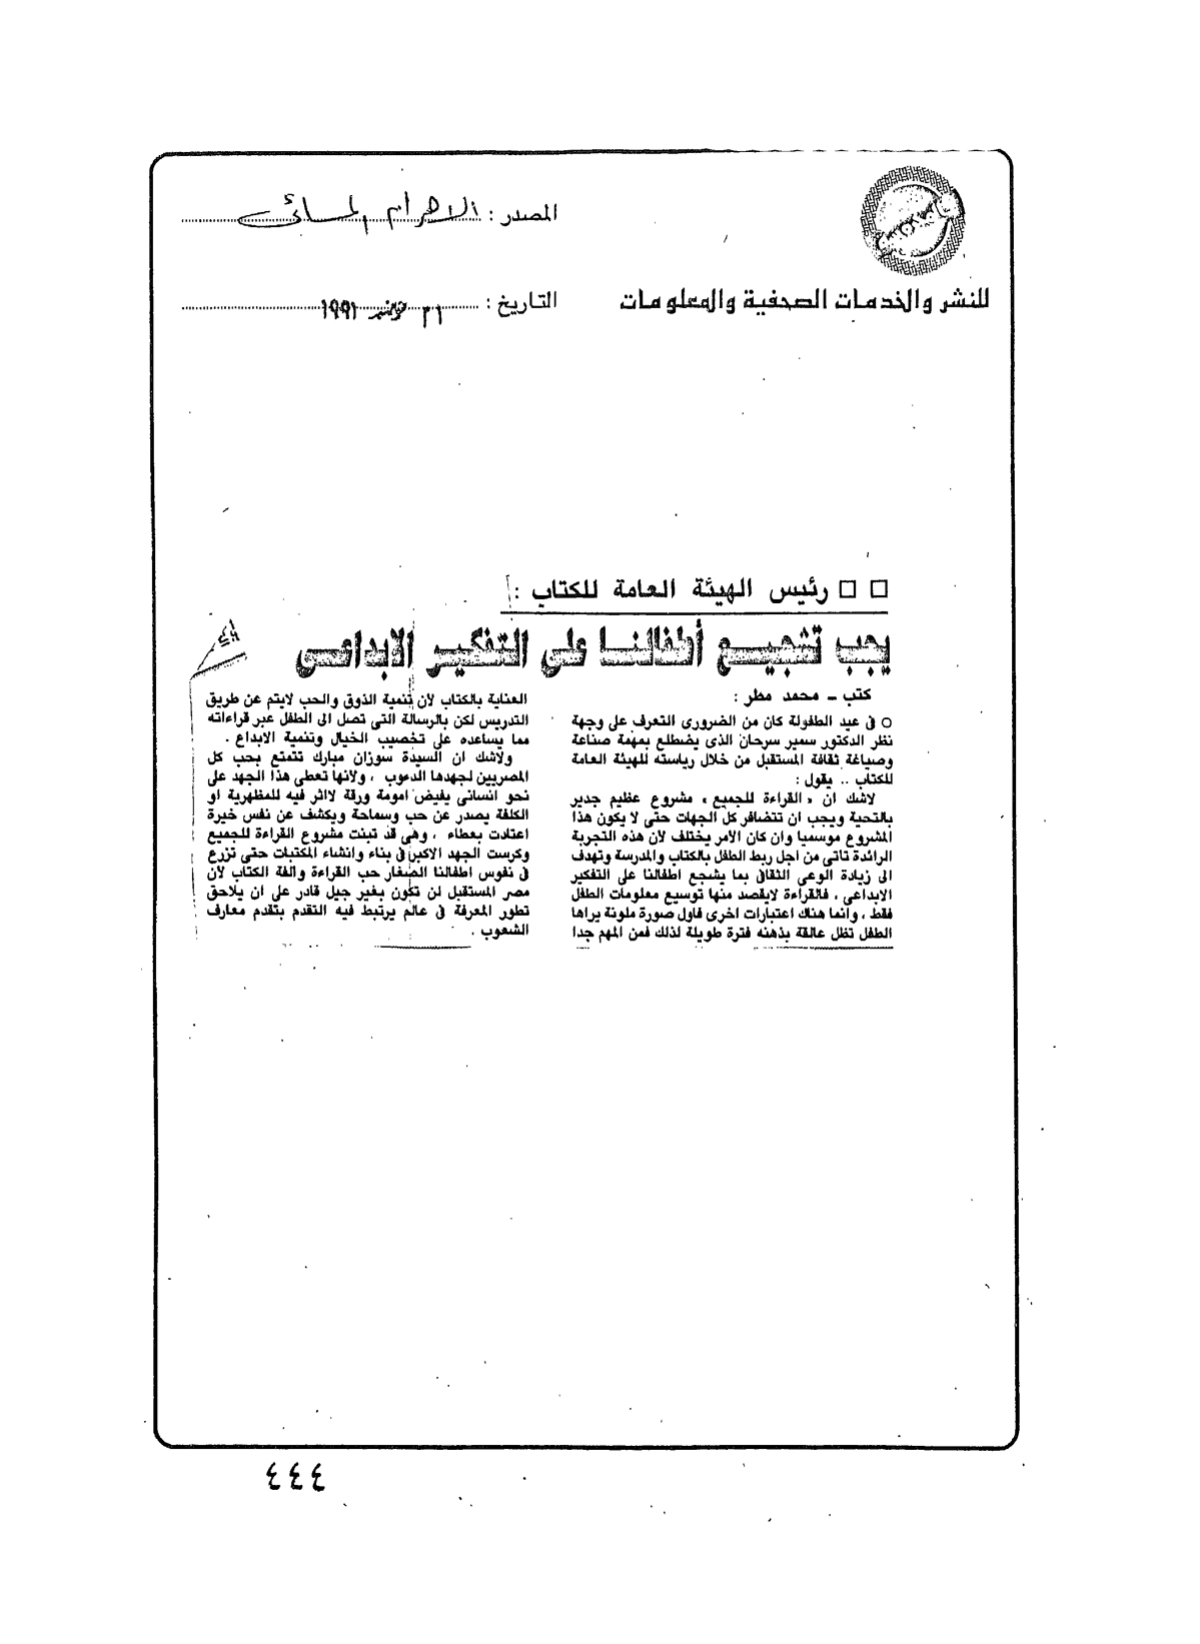 المصدر : الاهرام المسائى
للنشر والخدمات الصحفية والمعلومات
التاريخ : ٢١ نوفمبر ١٩٩١
رئيس الهيئة العامة للكتاب :
يجب تشجيع أطفالنا على التفكير الابداعى
كتب ـ محمد مطر :
○ فى عيد الطفولة كان من الضرورى التعرف على وجهة
نظر الدكتور سمير سرحان الذى يضطلع بمهمة صناعة
وصياغة ثقافة المستقبل من خلال رياسته للهيئة العامة
للكتاب .. يقول :
لاشك ان « القراءة للجميع » مشروع عظيم جدير
بالتحية ويجب ان تتضافر كل الجهات حتى لا يكون هذا
المشروع موسميا وان كان الأمر يختلف لأن هذه التجربة
الرائدة تاتى من اجل ربط الطفل بالكتاب والمدرسة وتهدف
الى زيادة الوعى الثقافى بما يشجع اطفالنا على التفكير
الابداعى ، فالقراءة لايقصد منها توسيع معلومات الطفل
فقط ، وانما هناك اعتبارات اخرى فاول صورة ملونة يراها
الطفل تظل عالقة بذهنه فترة طويلة لذلك فمن المهم جدا
العناية بالكتاب لأن تنمية الذوق والحب لايتم عن طريق
التدريس لكن بالرسالة التى تصل الى الطفل عبر قراءاته
مما يساعده على تخصيب الخيال وتنمية الابداع .
ولاشك ان السيدة سوزان مبارك تتمتع بحب كل
المصريين لجهدها الدءوب ، ولانها تعطى هذا الجهد على
نحو انسانى يفيض امومة ورقة لااثر فيه للمظهرية او
الكلفة يصدر عن حب وسماحة ويكشف عن نفس خيرة
اعتادت بعطاء ، وهى قد تبنت مشروع القراءة للجميع
وكرست الجهد الاكبر فى بناء وانشاء المكتبات حتى تزرع
فى نفوس اطفالنا الصغار حب القراءة والفة الكتاب لأن
مصر المستقبل لن تكون بغير جيل قادر على ان يلاحق
تطور المعرفة فى عالم يرتبط فيه التقدم بتقدم معارف
الشعوب .
٤٤٤